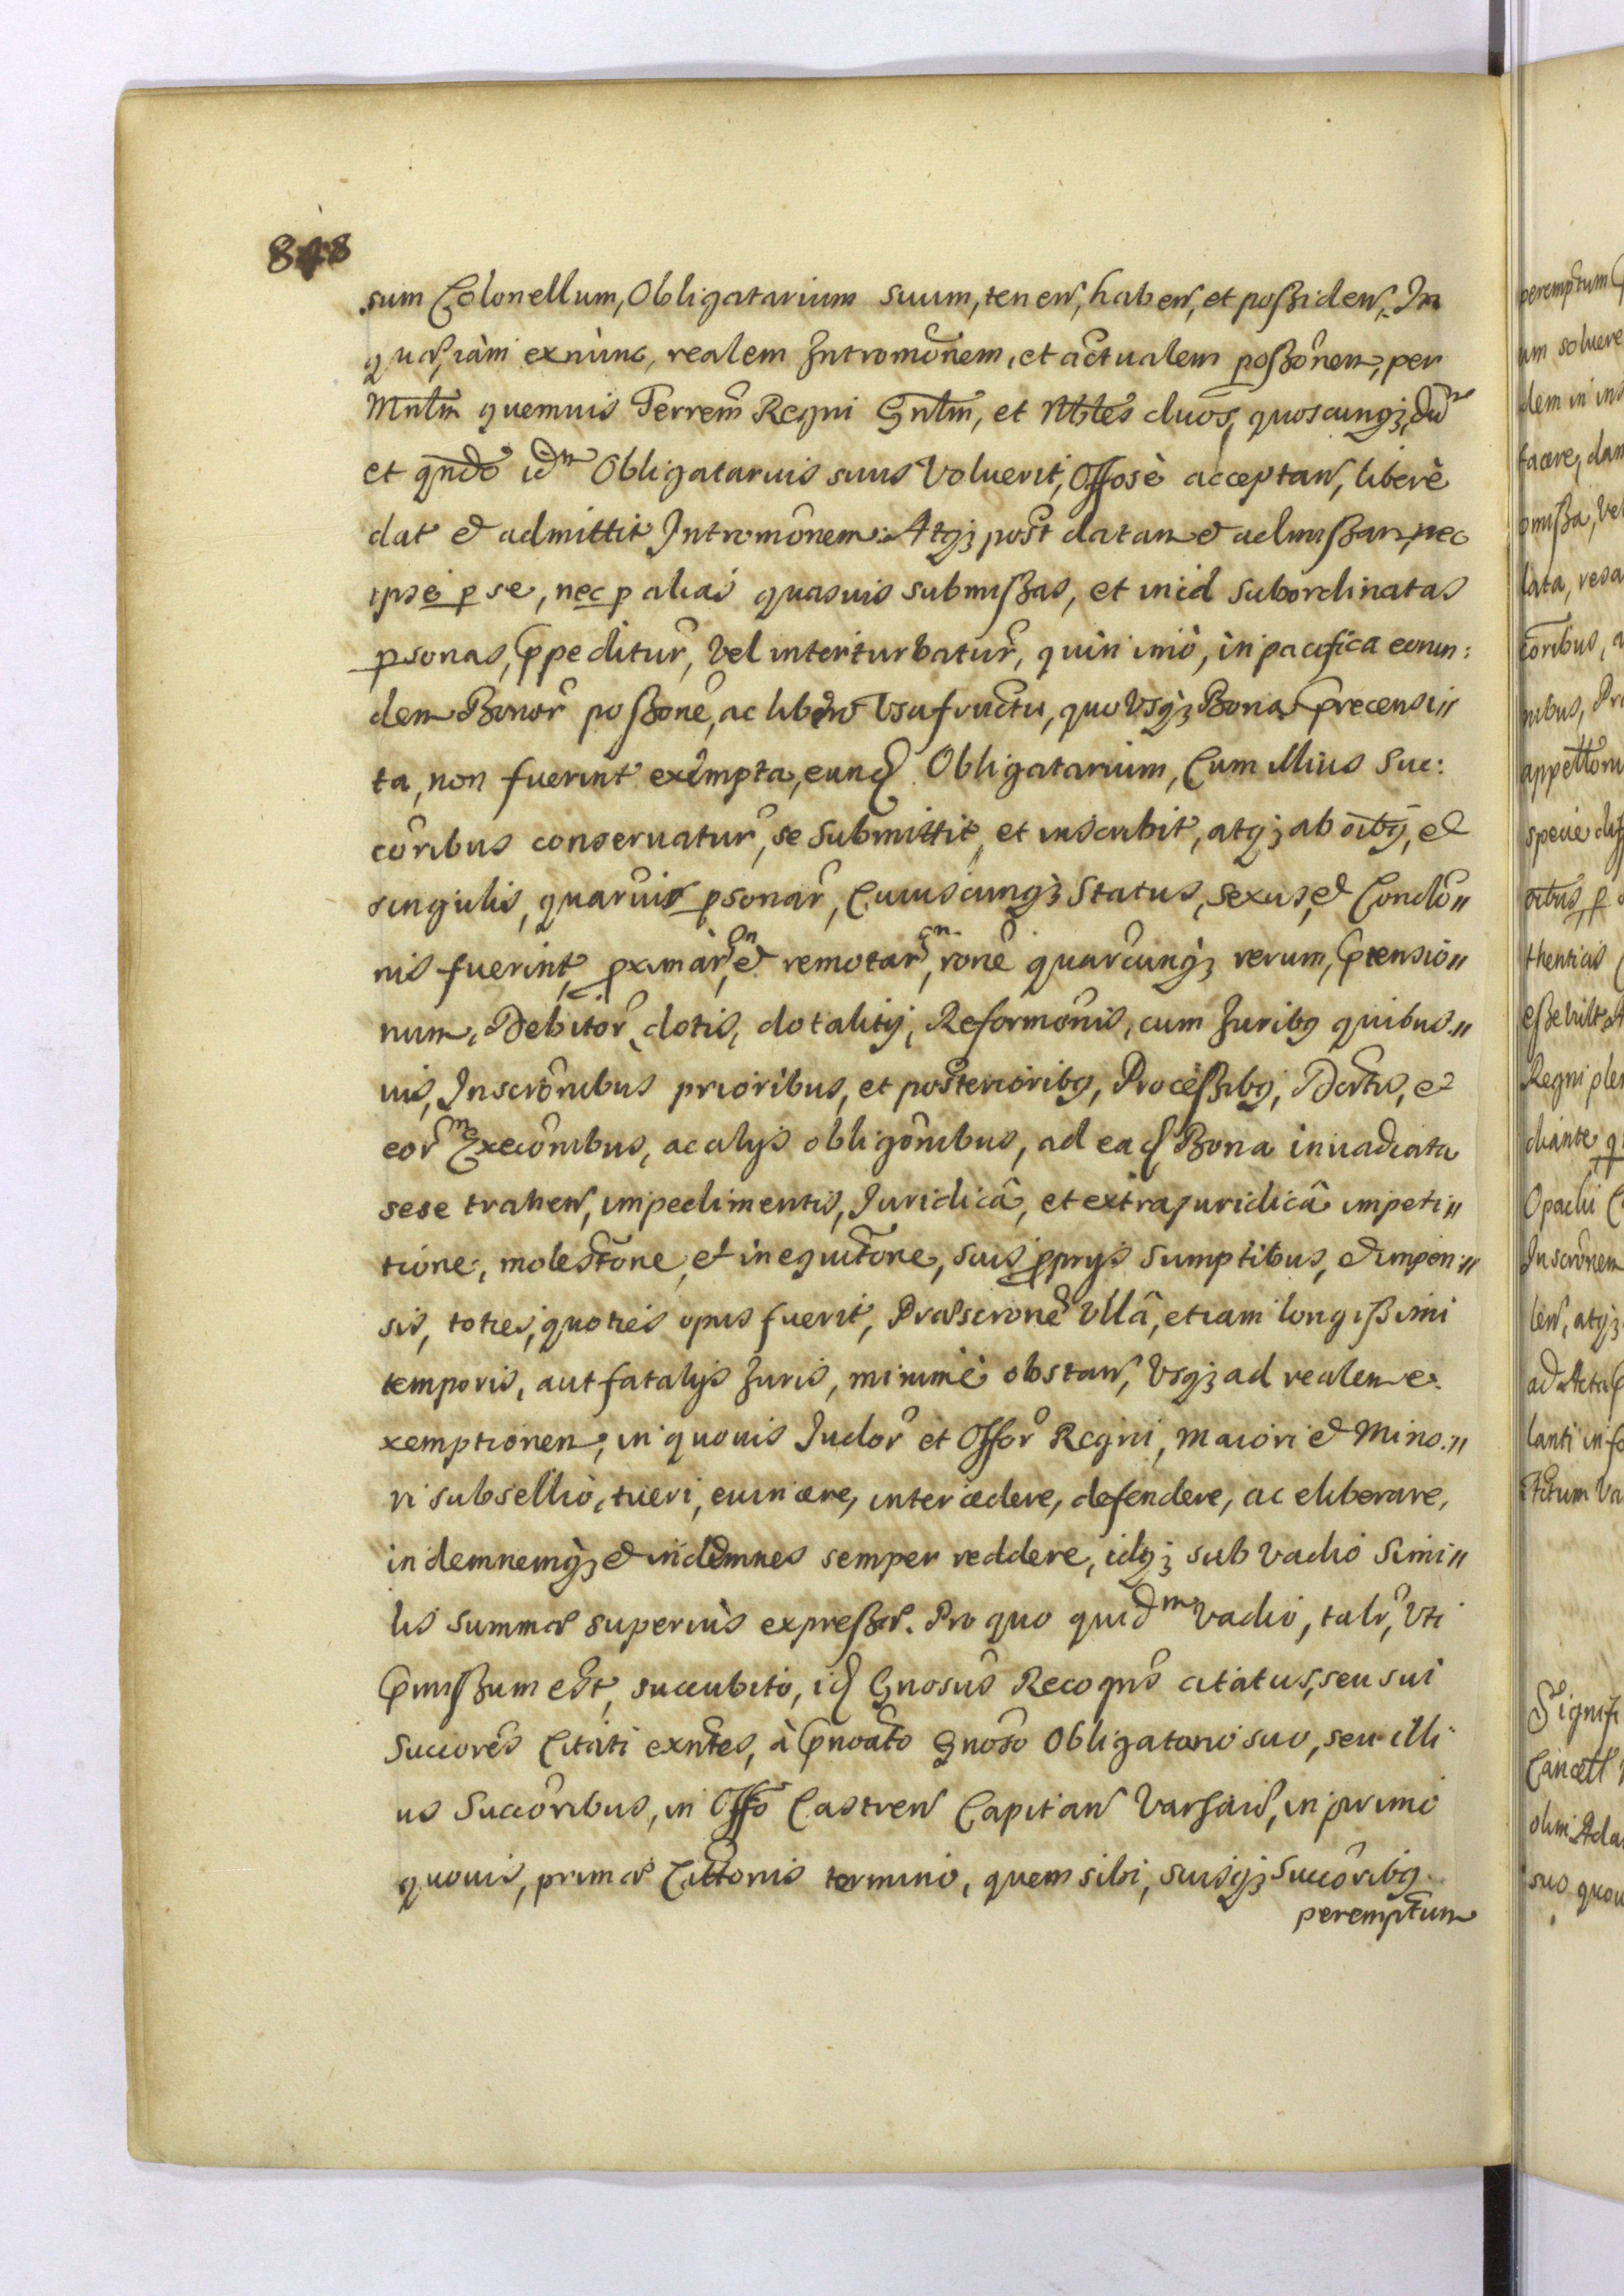 848
sum Colonellum, Obligatarium suum, tenen, haben, et possiden, In
quae, iàm exnunc, realem Intromonem, et actualem possonem, per
Mnlm quemuis Terrem Regni Gnlm, et Nbles duos, quoscunq;, dũ
et qndo idm Obligatarius suus Voluerit, Offose acceptan, liberè
dat et admittit Intromonem. Atq; post datam et admissam, nec
ipse p se, nec p alias quasuis submissas, et in id subordinatas
psonas, ppeditur, Vel interturbatur, quin imò, in pacifica eorun:
dem Bonor possone, ac libero Vsufructu, quo Vsq; Bona precensi//
ta, non fuerint exempta, eund Obligatarium, Cum illius Suc:
coribus conseruatur, se submittit, et inscribit, atq; ab oibq, et
singulis, quaruis psonar, Cuiuscunq; Status, Sexus, et Condo//
nis fuerint, pximar, et remotar, rone quarcunq; rerum, ptensio//
num, Debitor, dotis, dotalitij, Reformonis, cum Juribq quibus//
uis, Inscronibus prioribus, et posterioribq, Processibq, Dcrtis, et
eorm Execonibus, ac alijs obligonibus, ad ead Bona inuadiata
sese trahen, impedimentis, Juridicâ, et extrajuridicâ impeti//
tione, molestone, et inequitone, suis pprijs sumptibus, et impen//
sis, toties, quoties opus fuerit, Praescrone Vllâ, etiam longissimi
temporis, aut fatalijs Juris, minimè obstan, Vsq; ad realem e.
xemptionem, in quouis Judor et Offor Regni, Maiori et Mino//
ri subsellio, tueri, euincere, intercedere, defendere, ac eliberare,
indemnemq; et indemnes semper reddere, idq; sub Vadio Simi//
lis Summae superiùs expressae. Pro quo quidm Vadio, talr, Vti
pmissum est, succubito, id Gnosus Recogns citatus, seu sui
Succores Citati exntes, à pnoato Gnoso Obligatario suo, seu illi
us Succoribus, in Offo Castren Capitan Varsauien, in primo
quouis, primae Cittonis termino, quem sibi, suisq; Succoribq
peremptum